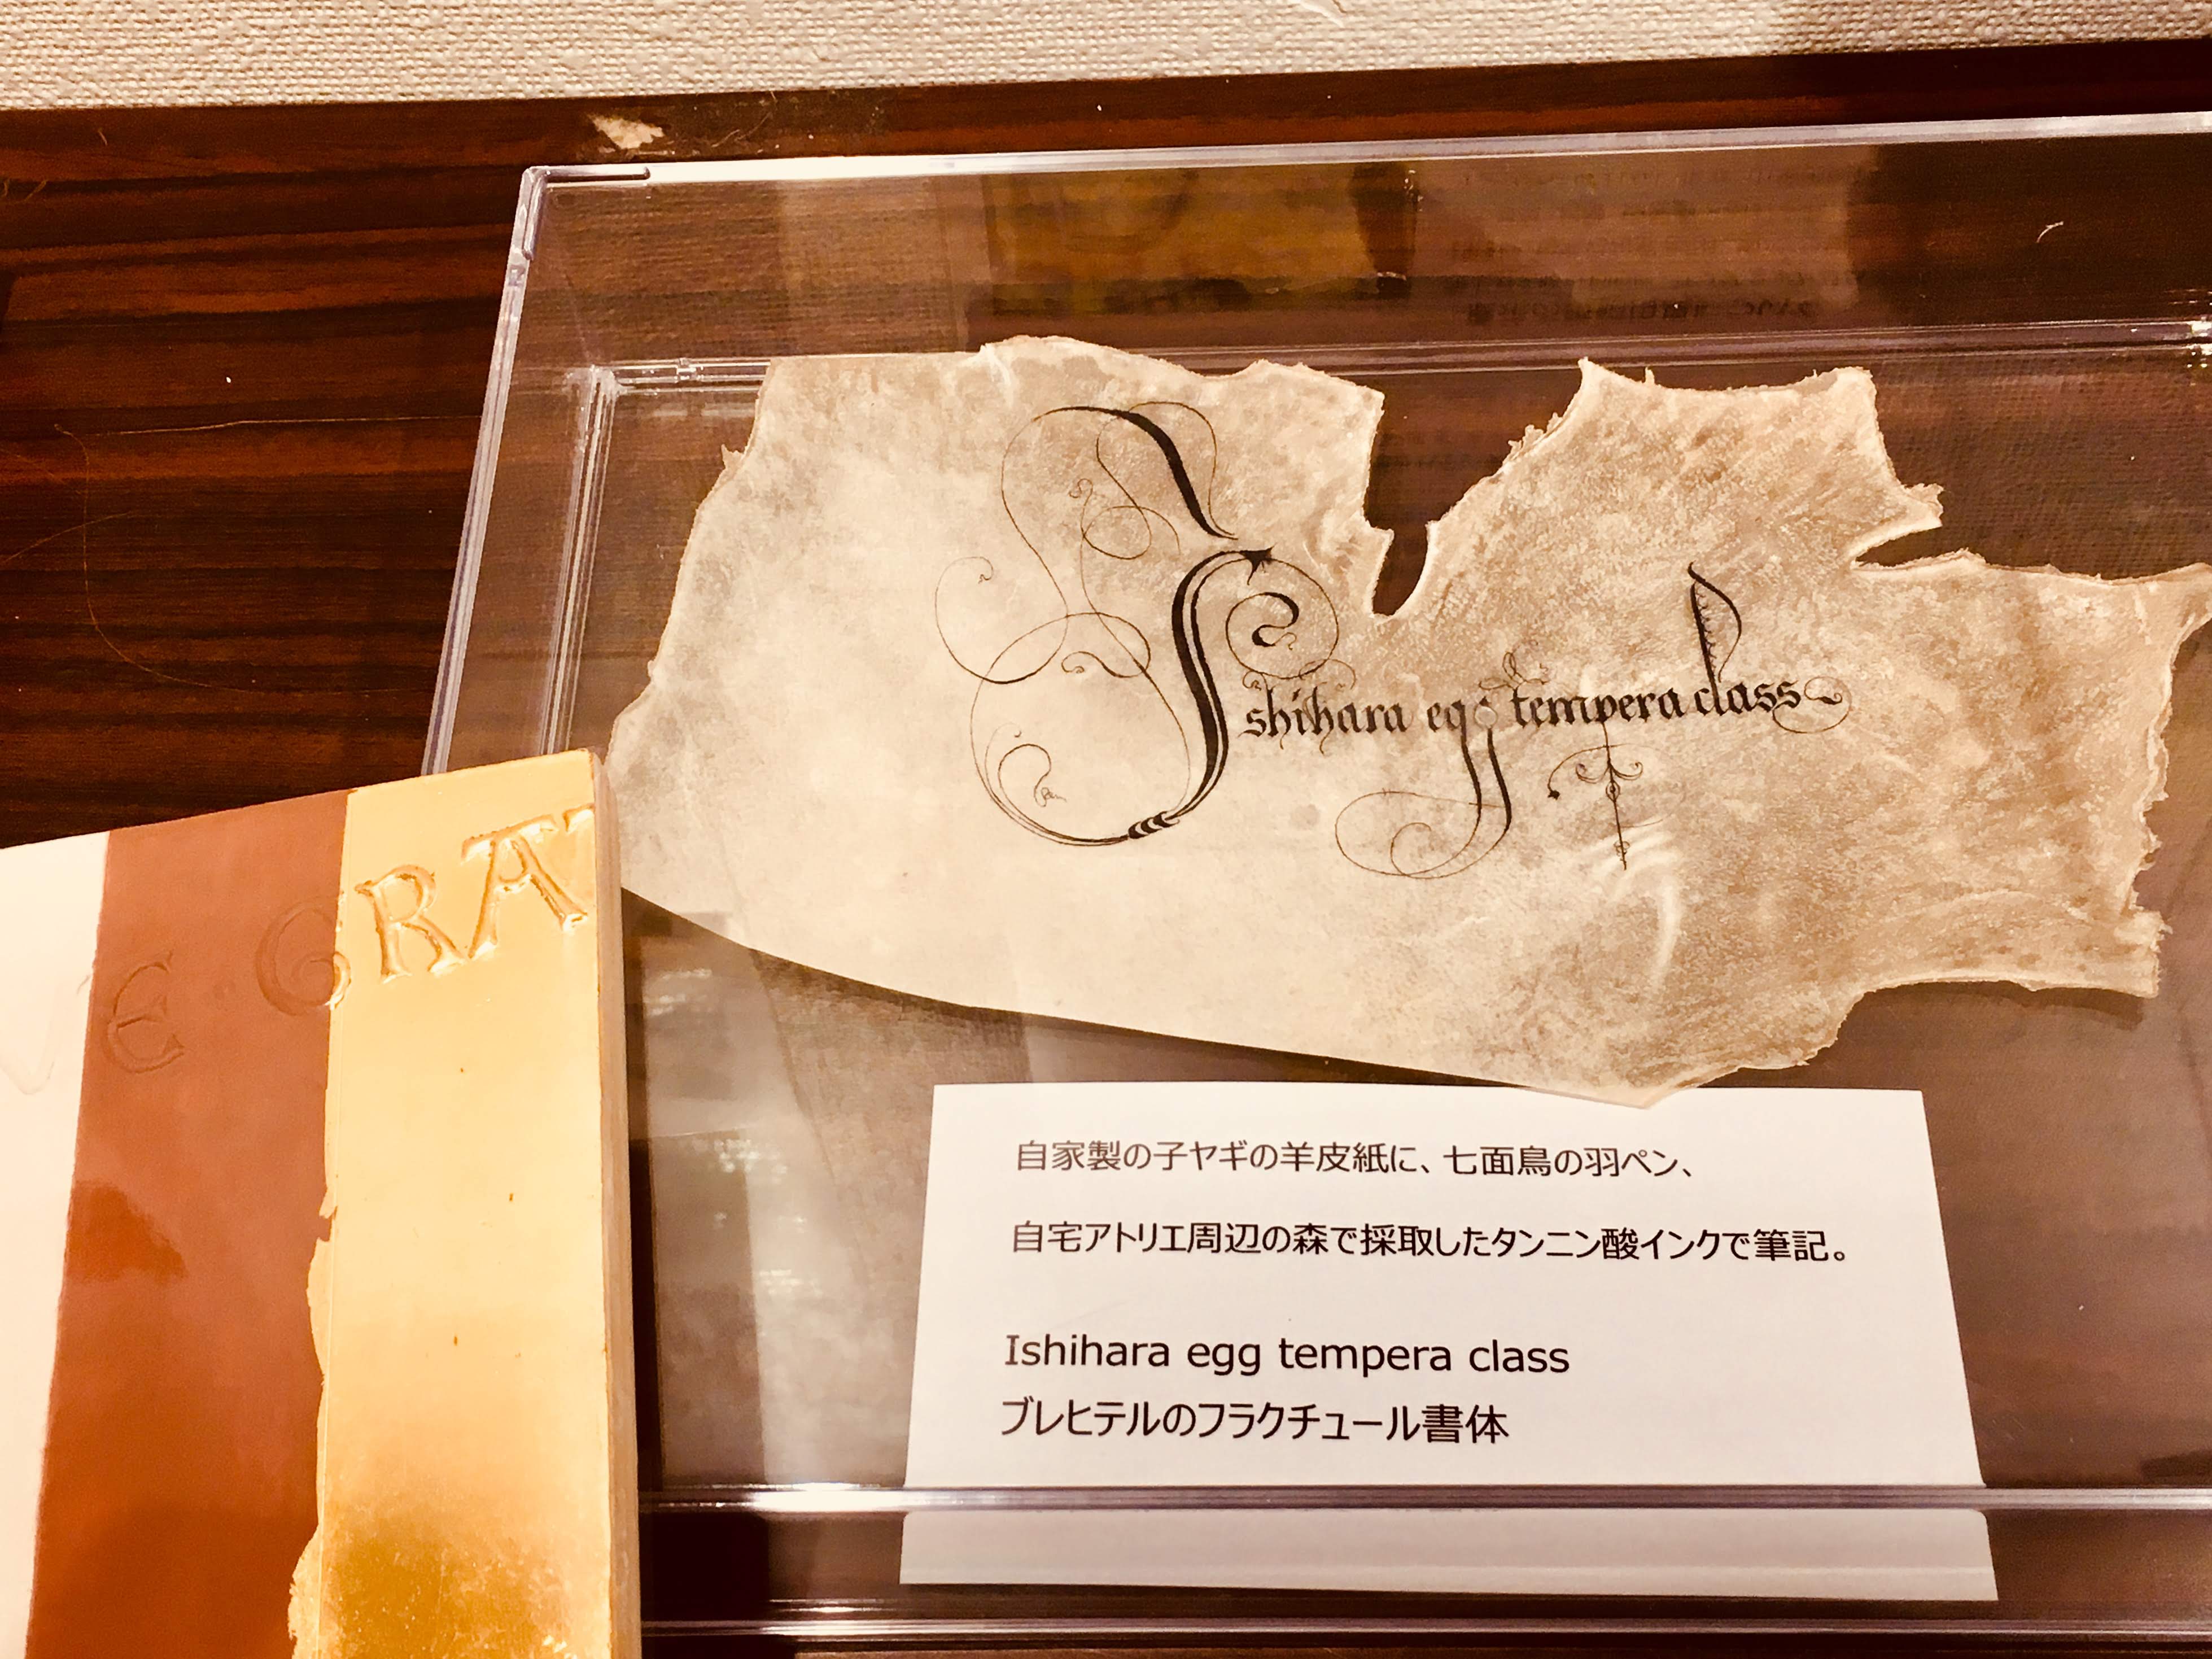 Ishihara egg tempera class
E · GRAT
自家製の子ヤギの羊皮紙に、七面鳥の羽ペン、
自宅アトリエ周辺の森で採取したタンニン酸インクで筆記。
Ishihara egg tempera class
ブレヒテルのフラクチュール書体